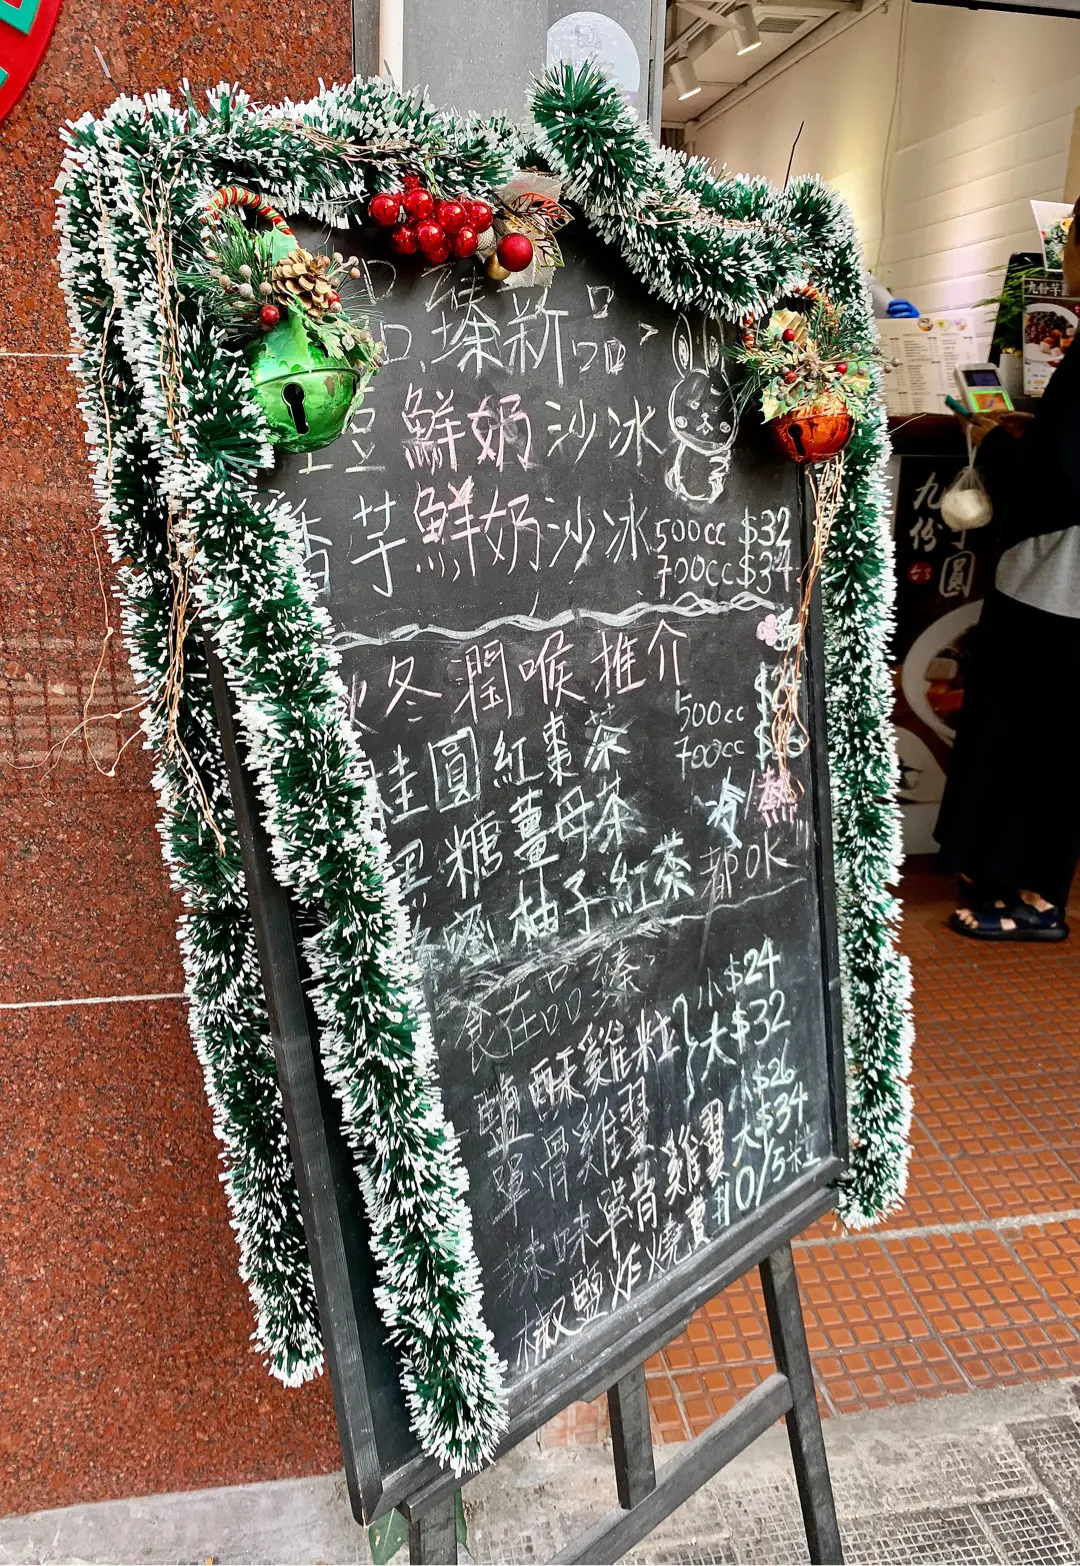 品臻新品
豆鮮奶沙冰
香芋鮮奶沙冰 500cc $32
700cc $34
冬潤喉推介
500cc
桂圓紅棗茶 700cc
黑糖薑母茶 冷/熱
柚子紅茶 都OK
食在品臻
鹽酥雞粒 小$24
大$32
單骨雞翼 小$26
辣味單骨雞翼 大$34
椒鹽炸燒賣 $10/5粒
九份
圓